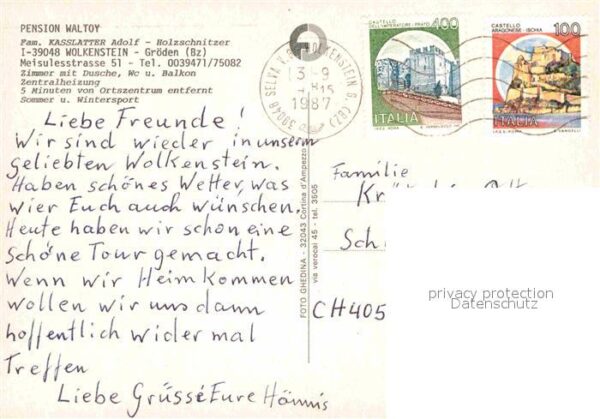 PENSION WALTOY
Fam. KASSLATTER Adolf - Holzschnitzer
I-39048 WOLKENSTEIN - Gröden (Bz)
Meisulesstrasse 51 - Tel. 0039471/75082
Zimmer mit Dusche, Wc u. Balkon
Zentralheizung
5 Minuten von Ortszentrum entfernt
Sommer u. Wintersport
Liebe Freunde!
Wir sind wieder in unserm
geliebten Wolkenstein.
Haben schönes Wetter, was
wier Euch auch wünschen.
Heute haben wir schon eine
schöne Tour gemacht.
Wenn wir Heim kommen
wollen wir uns dann
hoffentlich wider mal
Treffen
Liebe Grüsse Eure
FOTO GHEDINA - 32043 Cortina d'Ampezzo
via verocai 45 - tel. 3505
39048 SELVA WOLKENSTEIN G. (BZ)
13-9
1987
CASTELLO
DELL'IMPERATORE-PRATO
400
ITALIA
I.P.Z.S. ROMA
CASTELLO
ARAGONESE - ISCHIA
100
ITALIA
I.P.Z.S. ROMA
Familie
Sch
CH405
privacy protection
Datenschutz